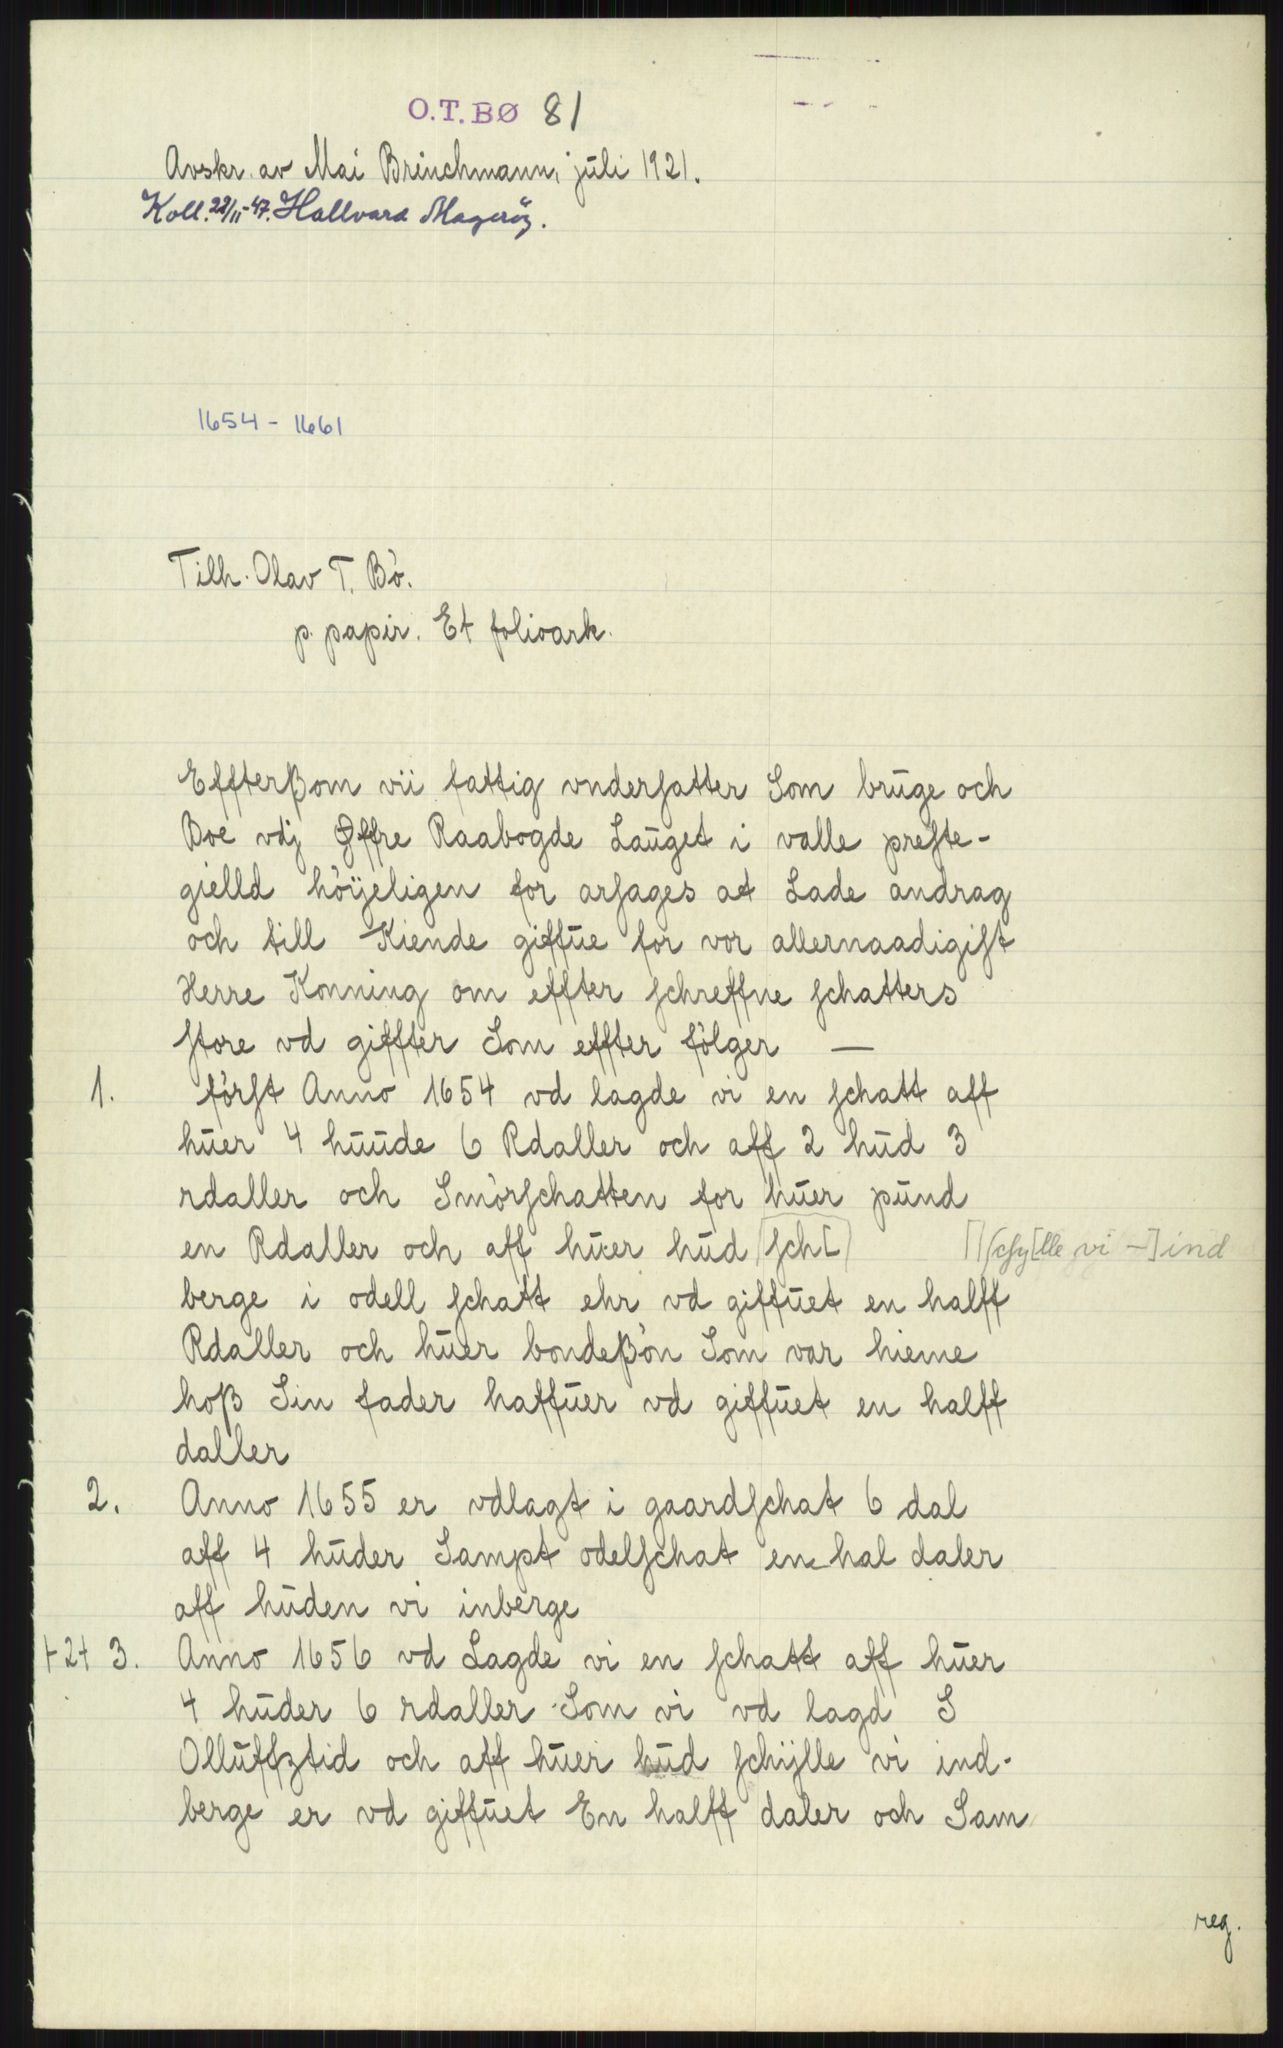 O.T. BØ 81
Avskr. av Mai Brinchmann, juli 1921.
Koll. 22/11-47. Hallvard Magerøy.
1654 - 1661
Tilh. Olav T. Bö.
p. papir. Et folioark.
Effterßom vii fattig vndersatter Som bruge och
Boe vdj Øffre Raabogde Lauget i valle preste-
gielld höÿeligen for arsages at Lade andrag
och till Kiende giffue for vor allernaadigist
Herre Konning om effter schreffne schatters
store vd giffter Som effter fölger —
1. först Anno 1654 vd lagde vi en schatt aff
huer 4 huude 6 Rdaller och aff 2 hud 3
rdaller och Smörschatten for huer pund
en Rdaller och aff huer hud [sch[ ] [ ] schy[lle vi -] ind
berge i odell schatt ehr vd giffuet en halff
Rdaller och huer bondeßön Som var hieme
hoß Sin fader haffuer vd giffuet en halff
daller
2. Anno 1655 er vdlagt i gaardschat 6 dal
aff 4 huder Sampt odelschat en hal daler
aff huden vi inberge
+2+ 3. Anno 1656 vd Lagde vi en schatt aff huer
4 huder 6 rdaller Som vi vd lagd S
Olluffztid och aff huer hud schÿlle vi ind-
berge er vd giffuet En halff daler och Sam
reg.